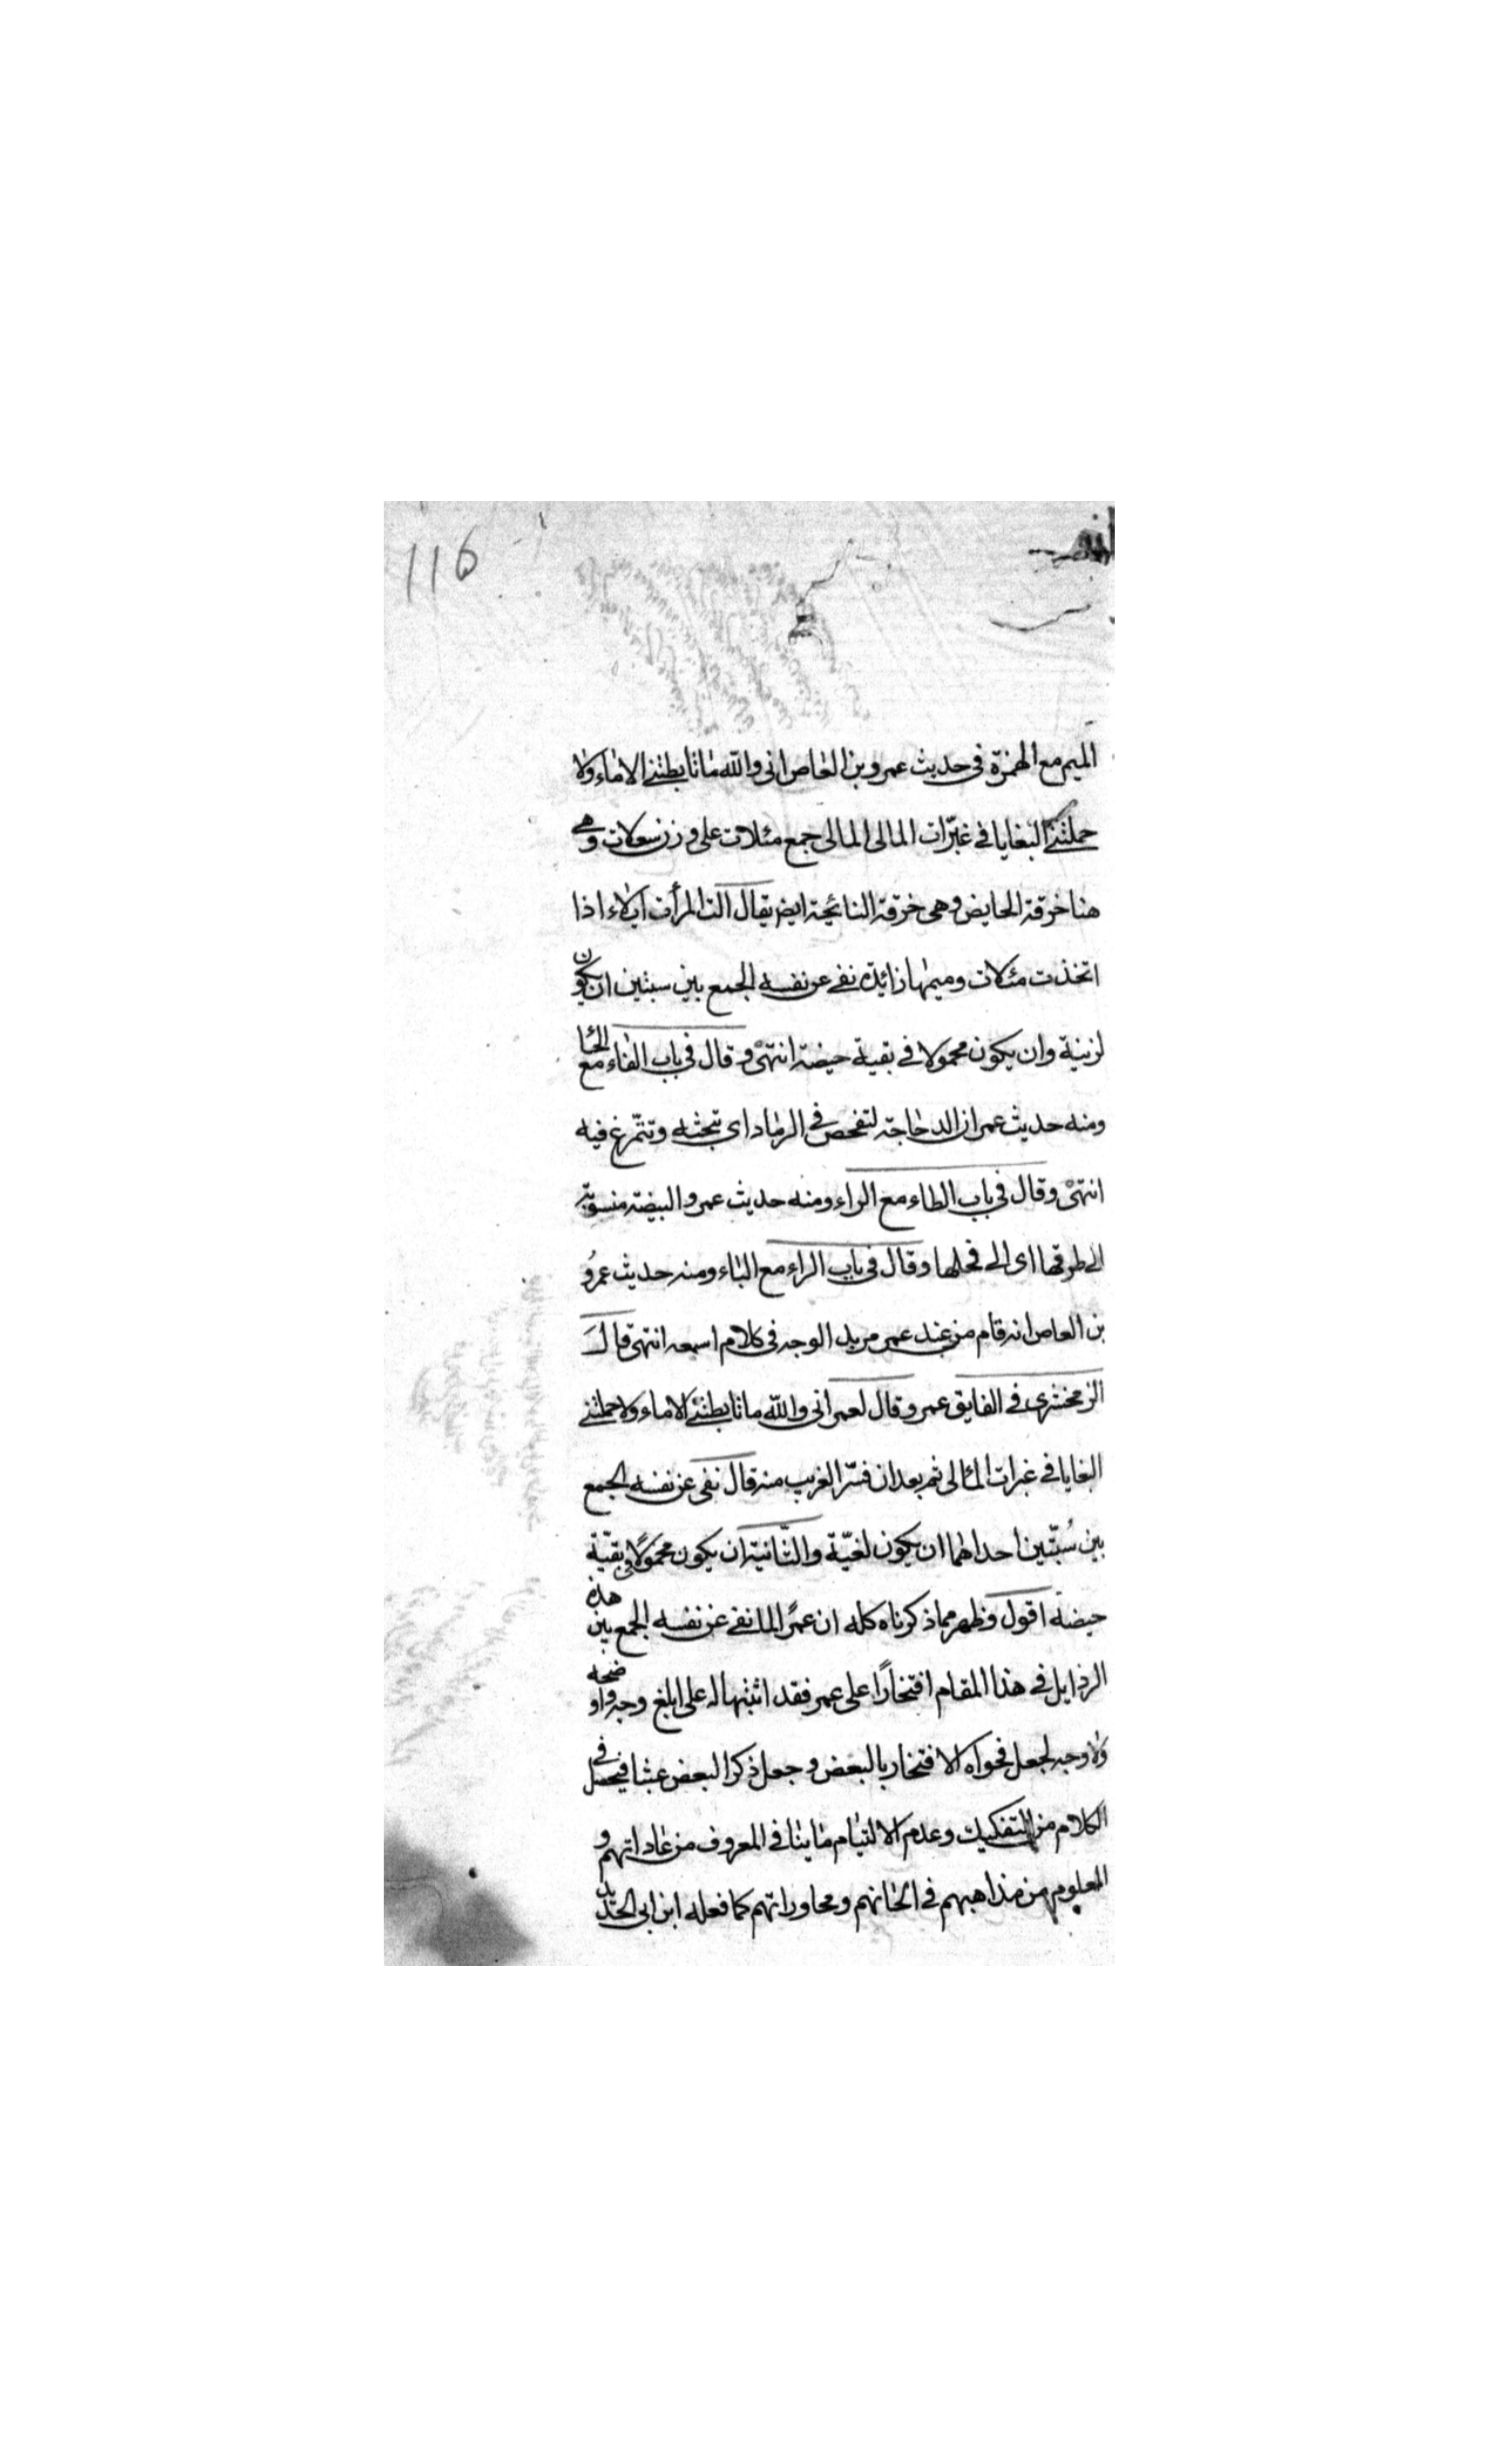 116
الميم مع الهمزة في حديث عمرو بن العاص انى والله ماتابطتنے الاماء ولا
حملتنے البغايا في غبّرات المالى المالى جمع مئلات على وزن سعلات وهي
هنا خرقة الحايض وهى خرقة النائحة ايض يقال الت المرأت ايلاء اذا
اتخذت مئلات وميمها زائدة نفے عن نفسه الجمع بين سبتين ان يكون
لزنية وان يكون محمولا في بقية حيضة انتهى وقال في باب الفاء مع الحا
ومنه حديث عمر ان الدجاجة لتفحص في الرماد اى تبحثه وتتمرغ فيه
انتهى وقال في باب الطاء مع الراء ومنه حديث عمرو البيضة منسوبة
الى طرقها اى الى فحلها وقال في باب الراء مع الباء ومنه حديث عمرو
بن العاص انه قام من عند عمر مربد الوجه في كلام اسمعه انتهى قال
الزمخشرى في الفايق عمرو قال لعمر انى والله ماتابطتنے الاماء ولا حملتنے
البغايا في غبرات المالى ثم بعد ان فسّر الغريب منه قال نفى عن نفسه الجمع
بين سُبّتين احداهما ان يكون لغيّة والثّانية ان يكون محمولًا فى بقيّة
حيضة اقول وظهر مما ذكرناه كله ان عمرًا لما نفے عن نفسه الجمع بين هذه
الرذايل في هذا المقام افتخارًا على عمر فقد اثبتها له على ابلغ وجه واوضحه
ولا وجه لجعل فحواه الافتخار بالبعض وجعل ذكر البعض عبثا فيحصل في
الكلام من التفكيك وعدم الالتيام ما ينافي المعروف من عاداتهم و
المعلوم من مذاهبهم في الحانهم ومحاوراتهم كما فعله ابن ابى الحديد